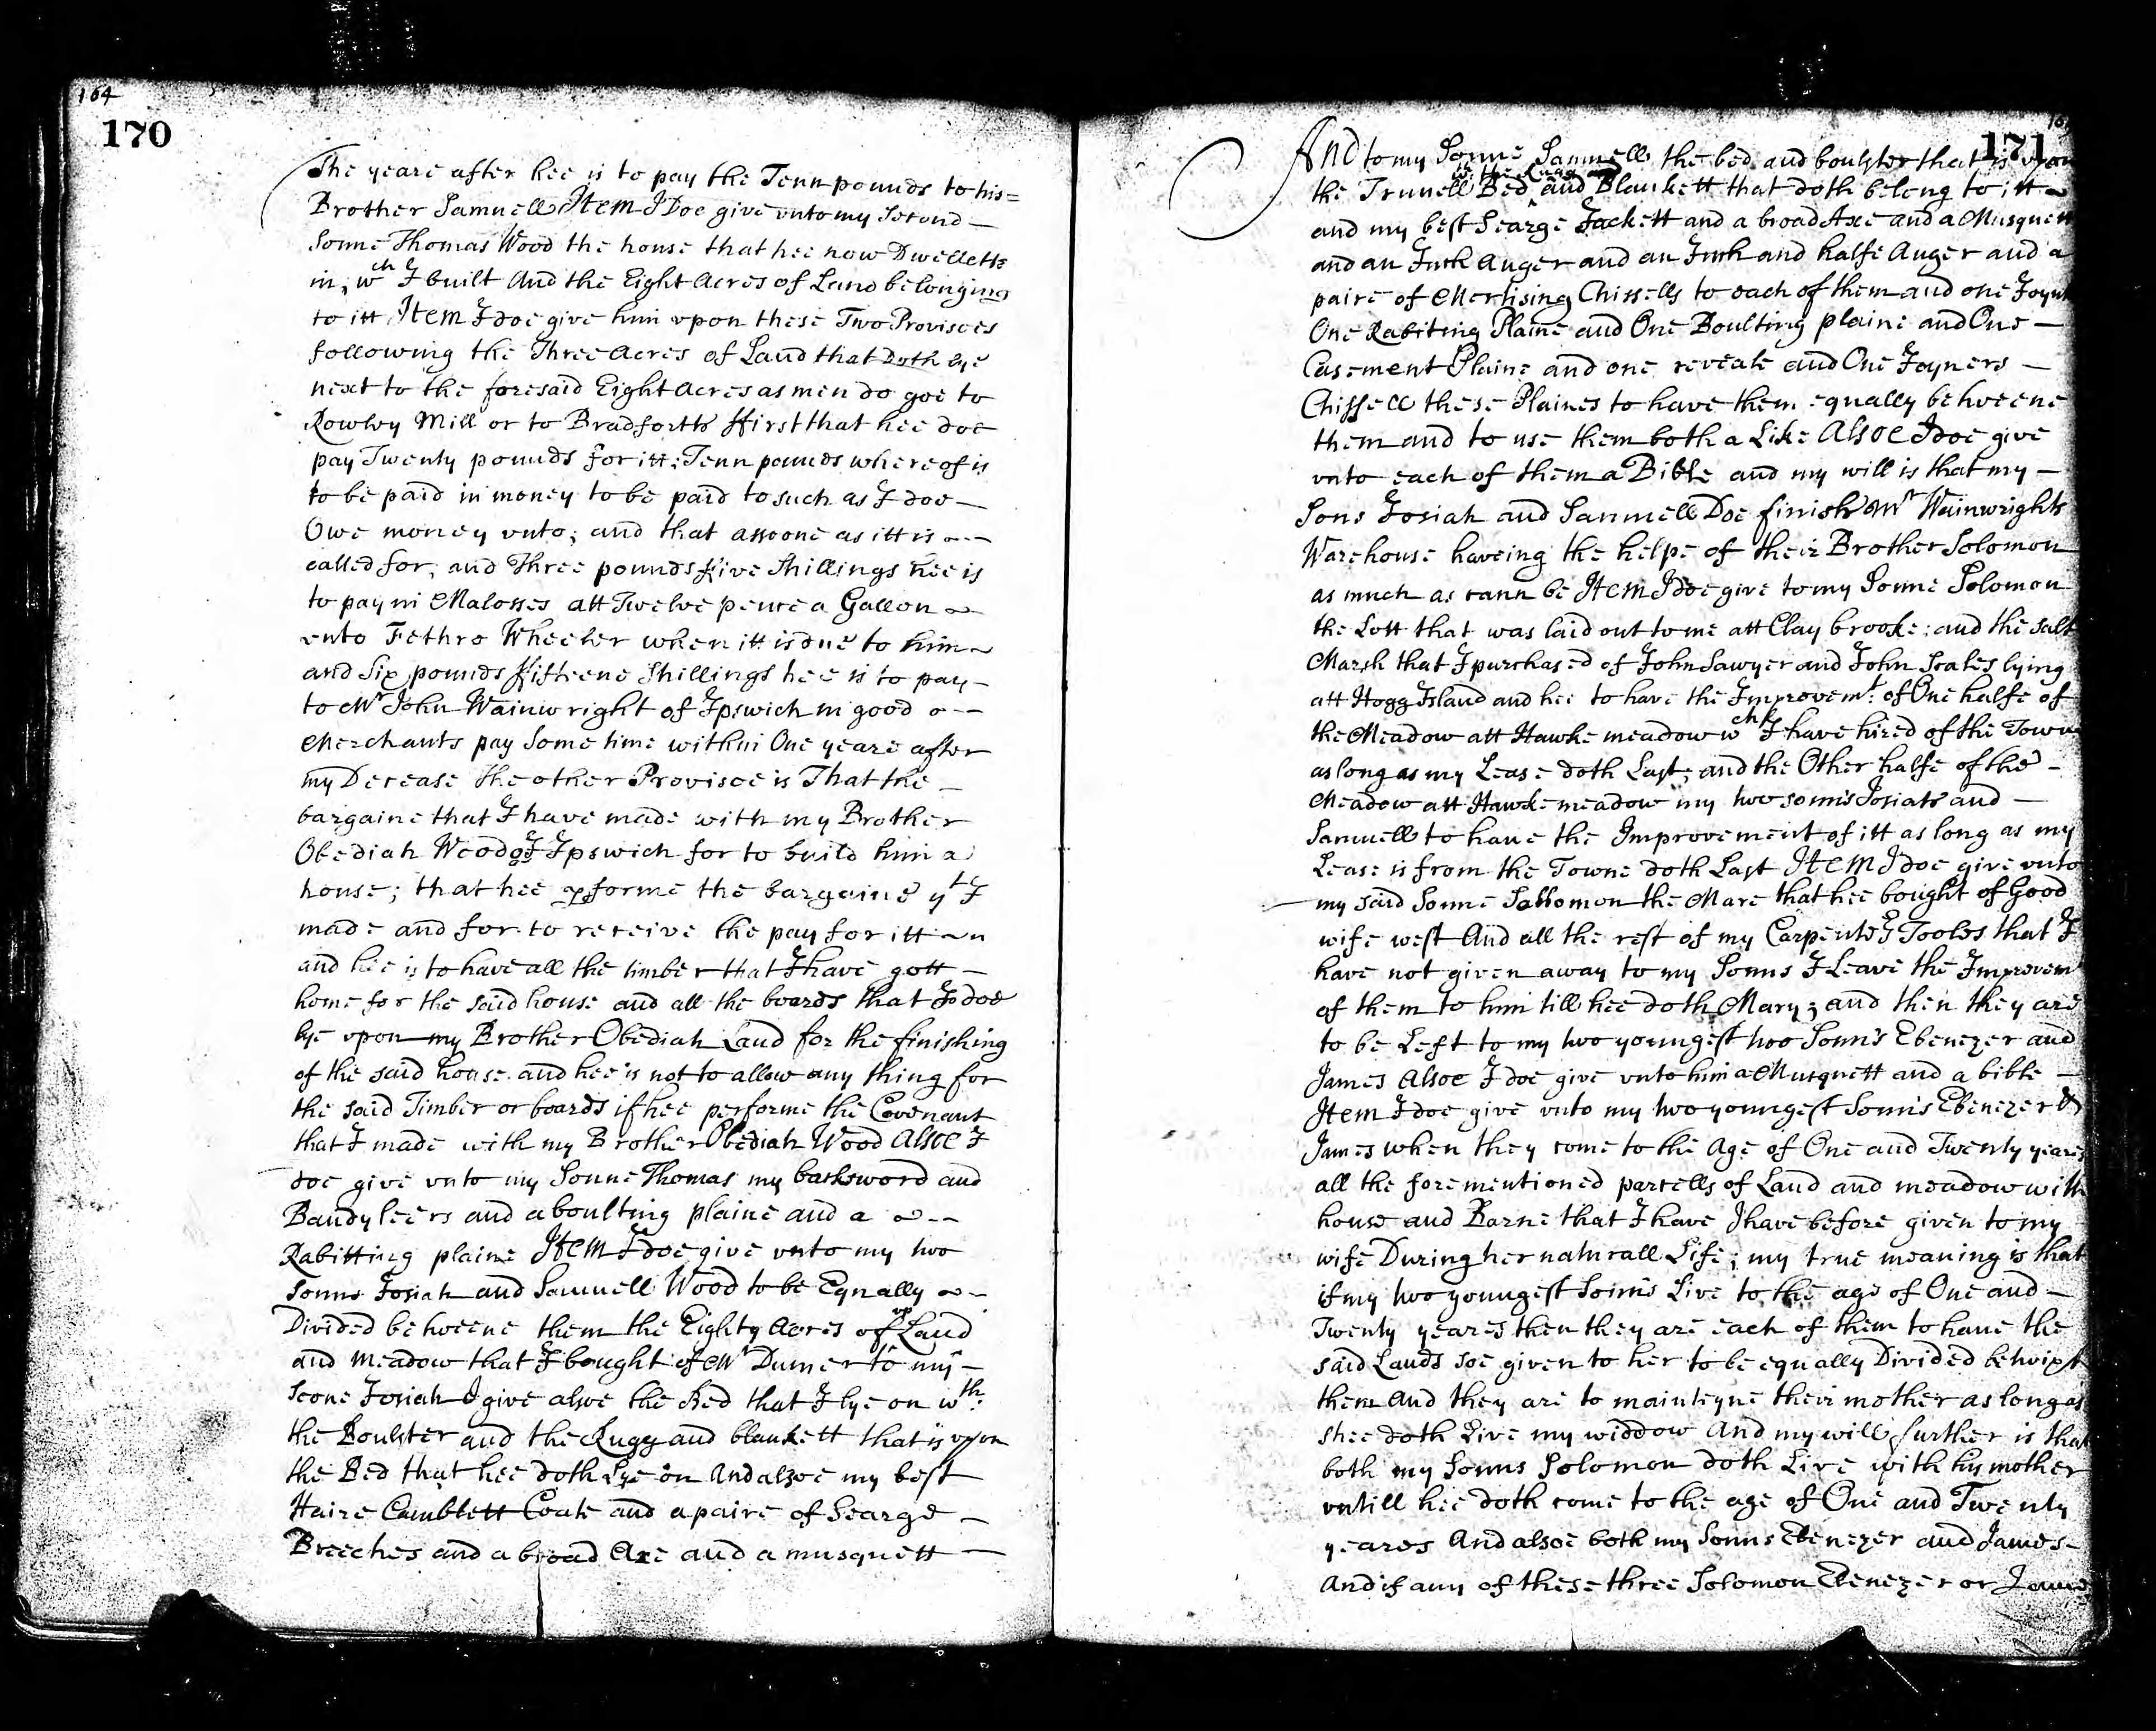 164
170
The yeare after hee is to pay the Tenn pounds to his=
Brother Samuell Item I Doe give vnto my second —
Sonne Thomas Wood the house that hee now Dwelleth
in, wch I built And the Eight Acres of Land belonging
to itt Item I doe give him vpon these Two Provisoes
following the Three Acres of Land that Doth lye
next to the foresaid Eight Acres as men do goe to
Rowley Mill or to Bradforth ffirst that hee doe
pay Twenty pounds for itt; Tenn pounds whereof is
to be paid in money to be paid to such as I doe —
Owe money vnto; and that assoone as itt is
called for; and Three pounds ffive Shillings hee is
to pay in Malosses att Twelve pence a Gallon
vnto Jethro Wheeler when itt is due to him
and Six pounds ffifteene Shillings hee is to pay —
to Mr John Wainwright of Ipswich in good
Merchants pay Some time within One yeare after
my Decease the other Provisoe is That the —
bargaine that I have made with my Brother
Obediah Wood of Ipswich for to build him a
house; that hee pforme the bargaine yt I
made and for to receive the pay for itt
and hee is to have all the timber that I have gott —
home for the said house and all the boards that doe
lye vpon my Brother Obediah Land for the finishing
of the said house and hee is not to allow any thing for
the said Timber or boards if hee performe the Covenant
that I made with my Brother Obediah Wood Alsoe I
doe give vnto my Sonne Thomas my backsword and
Bandyleers and a boulting plaine and a
Rabitting plaine Item I doe give vnto my two
Sonns Josiah and Samuell Wood to be Equally
Divided betweene them the Eighty Acres of vp Land
and Meadow that I bought of Mr Dumer to my —
Sonne Josiah I give alsoe the Bed that I lye on wth:
the Boulster and the Rugg and blankett that is vpon
the Bed that hee doth Lye on And alsoe my best
Haire Camblett Coate and a paire of Searge —
Breeches and a broad Axe and a musquett —
171
And to my Sonne Samuell the bed and boulster that is vpon
with the Rugg
the Trunell Bed and Blankett that doth belong to itt
and my best Searge Jackett and a broad Axe and a Musquett
and an Inch Auger and an Inch and halfe Auger and a
paire of Mortising Chissells to each of them and one
One Rabiting Plaine and One Boulting plaine and One —
Casement Plaine and one and One Joyners —
Chissell these Plaines to have them equally betweene
them and to use them both a Like Alsoe I doe give
vnto each of them a Bible and my will is that my —
Sons Josiah and Samuell Doe finish Mr Wainwrights
Warehouse haveing the helpe of their Brother Solomon
as much as cann be Item I doe give to my Sonne Solomon
the Lott that was laid out to me att Clay brooke; and the salt
Marsh that I purchased of John Sawyer and John Scales lying
att Hogg Island and hee to have the Improvemt: of One halfe of
the Meadow att Hawke meadow wch I have hired of the Towne
as long as my Lease doth Last; and the Other halfe of the —
Meadow att Hawke meadow my two sonns Josiah and —
Samuell to have the Improvement of itt as long as my
Lease is from the Towne doth Last Item I doe give vnto
my said Sonne Sallomon the Mare that hee bought of Good
wife west And all the rest of my Carpenters Tooles that I
have not given away to my Sonns I Leave the Improvem
of them to him till hee doth Mary; and then they are
to be Left to my two youngest two Sonns Ebenezer and
James Alsoe I doe give vnto him a Musquett and a bible —
Item I doe give vnto my two youngest Sonns Ebenezer &
James when they come to the Age of One and Twenty yeares
all the forementioned parcells of Land and meadow with
house and Barne that I have I have before given to my
wife During her naturall Life; my true meaning is that
if my two youngest Sonns Live to the age of One and —
Twenty yeares then they are each of them to have the
said Lands soe given to her to be equally Divided betwixt
them And they are to mainteyne their mother as long as
shee doth Live my widdow And my will further is that
both my Sonns Solomon doth Live with his mother
vntill hee doth come to the age of One and Twenty
yeares And alsoe both my Sonns Ebenezer and James —
And if any of these three Solomon Ebenezer or James